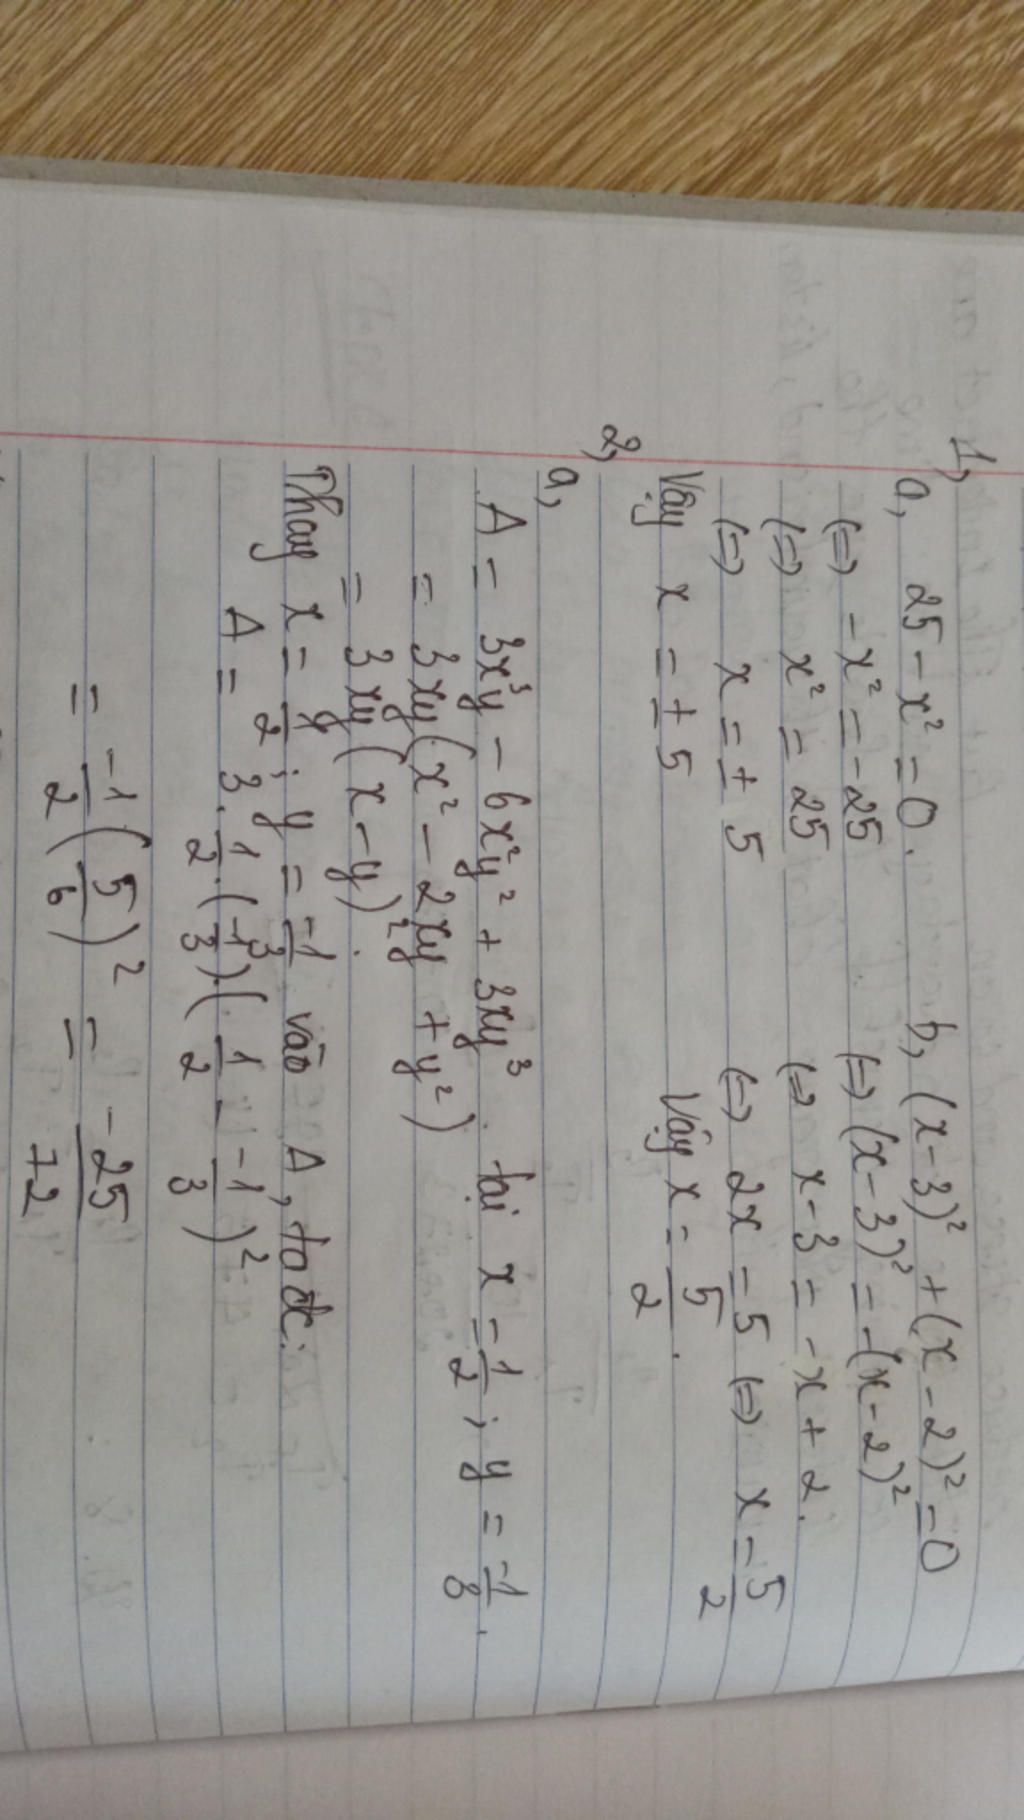 1,
a, 25 - x² = 0. b, (x-3)² + (x-2)² = 0
(=) -x² = -25 (=) (x-3)² = -(x-2)²
(=) x² = 25 (=) x-3 = -x+2.
(=) x = ± 5 (=) 2x = 5 (=) x = 5/2
Vậy x = ± 5 Vậy x = 5/2.
2,
a,
A = 3x³y - 6x²y² + 3xy³ tại x = 1/2; y = -1/3.
= 3xy(x² - 2xy + y²)
= 3xy(x-y)².
Thay x = 1/2; y = -1/3 vào A, ta đc:
A = 3.1/2.(-1/3).(1/2 - -1/3)²
= -1/2(5/6)² = -25/72